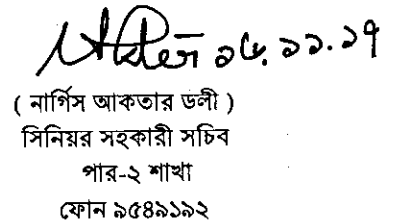 ( নার্গিস আকতার ডলী )
সিনিয়র সহকারী সচিব
পার-২ শাখা
ফোন ৯৫৪৯১৯২